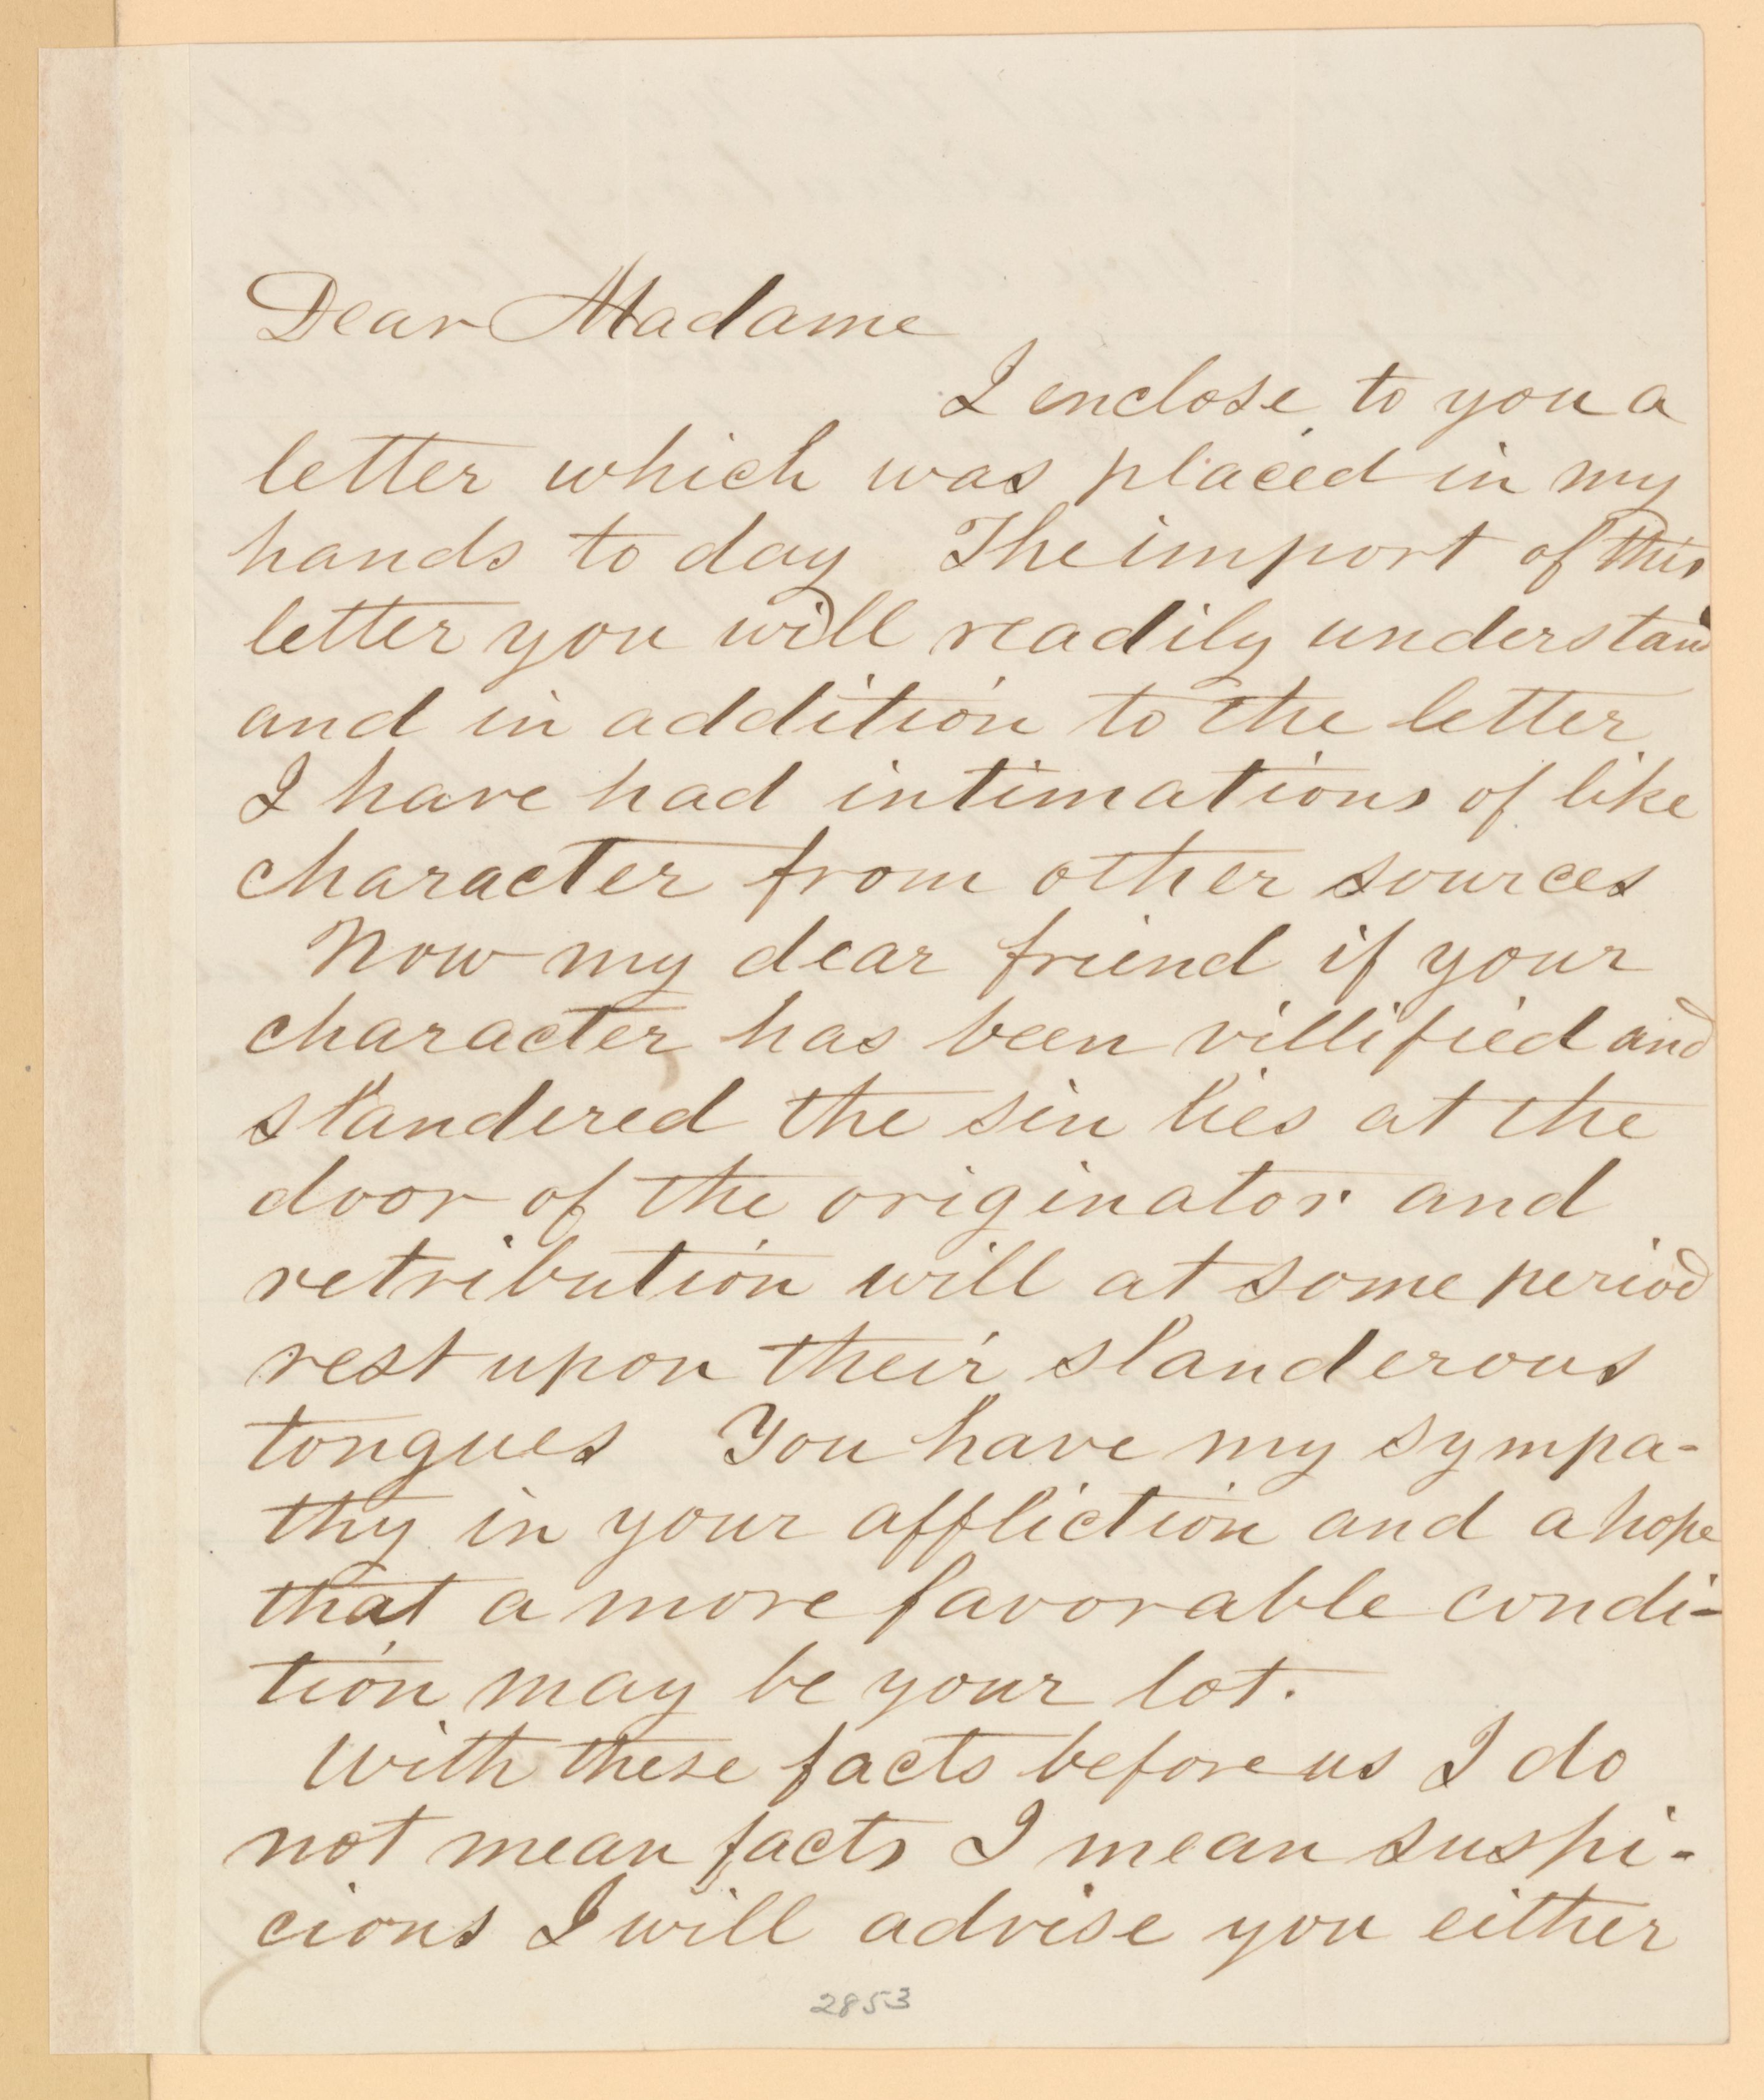 Dear Madame
I enclose to you a
letter which was placed in my
hands to day The import of this
letter you will readily understand
and in addition to the letter
I have had intimations of like
character from other sources
Now my dear friend if your
character has been villified and
slandered the sin lies at the
door of the originator and
retribution will at some period
rest upon their slanderous
tongues You have my sympa-
thy in your affliction and a hope
that a more favorable condi-
tion may be your lot.
With these facts before us I do
not mean facts I mean suspi-
cions I will advise you either
2853